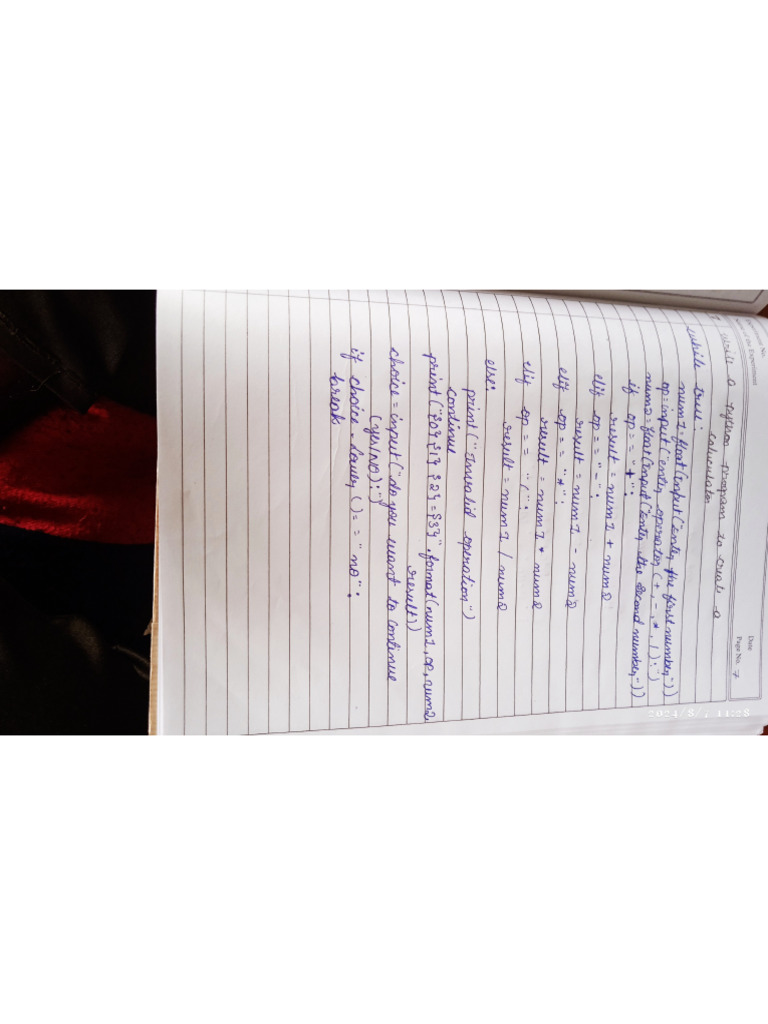 Date
Page No. 7
Write a python program to create a
calculator
while true:
num1=float(input("Enter the first number"))
op=input("enter operator (+,-,*,/):")
num2=float(input("Enter the second number"))
if op== "+":
result = num1 + num2
elif op== "-":
result = num1 - num2
elif op == "*":
result = num1 * num2
elif op == "/":
result = num1 / num2
else:
print("Invalid operation")
continue
print("{0} {1} {2} = {3}".format(num1, op, num2
result))
choice = input("do you want to continue
(yes/NO):")
if choice.lower() == "no":
break